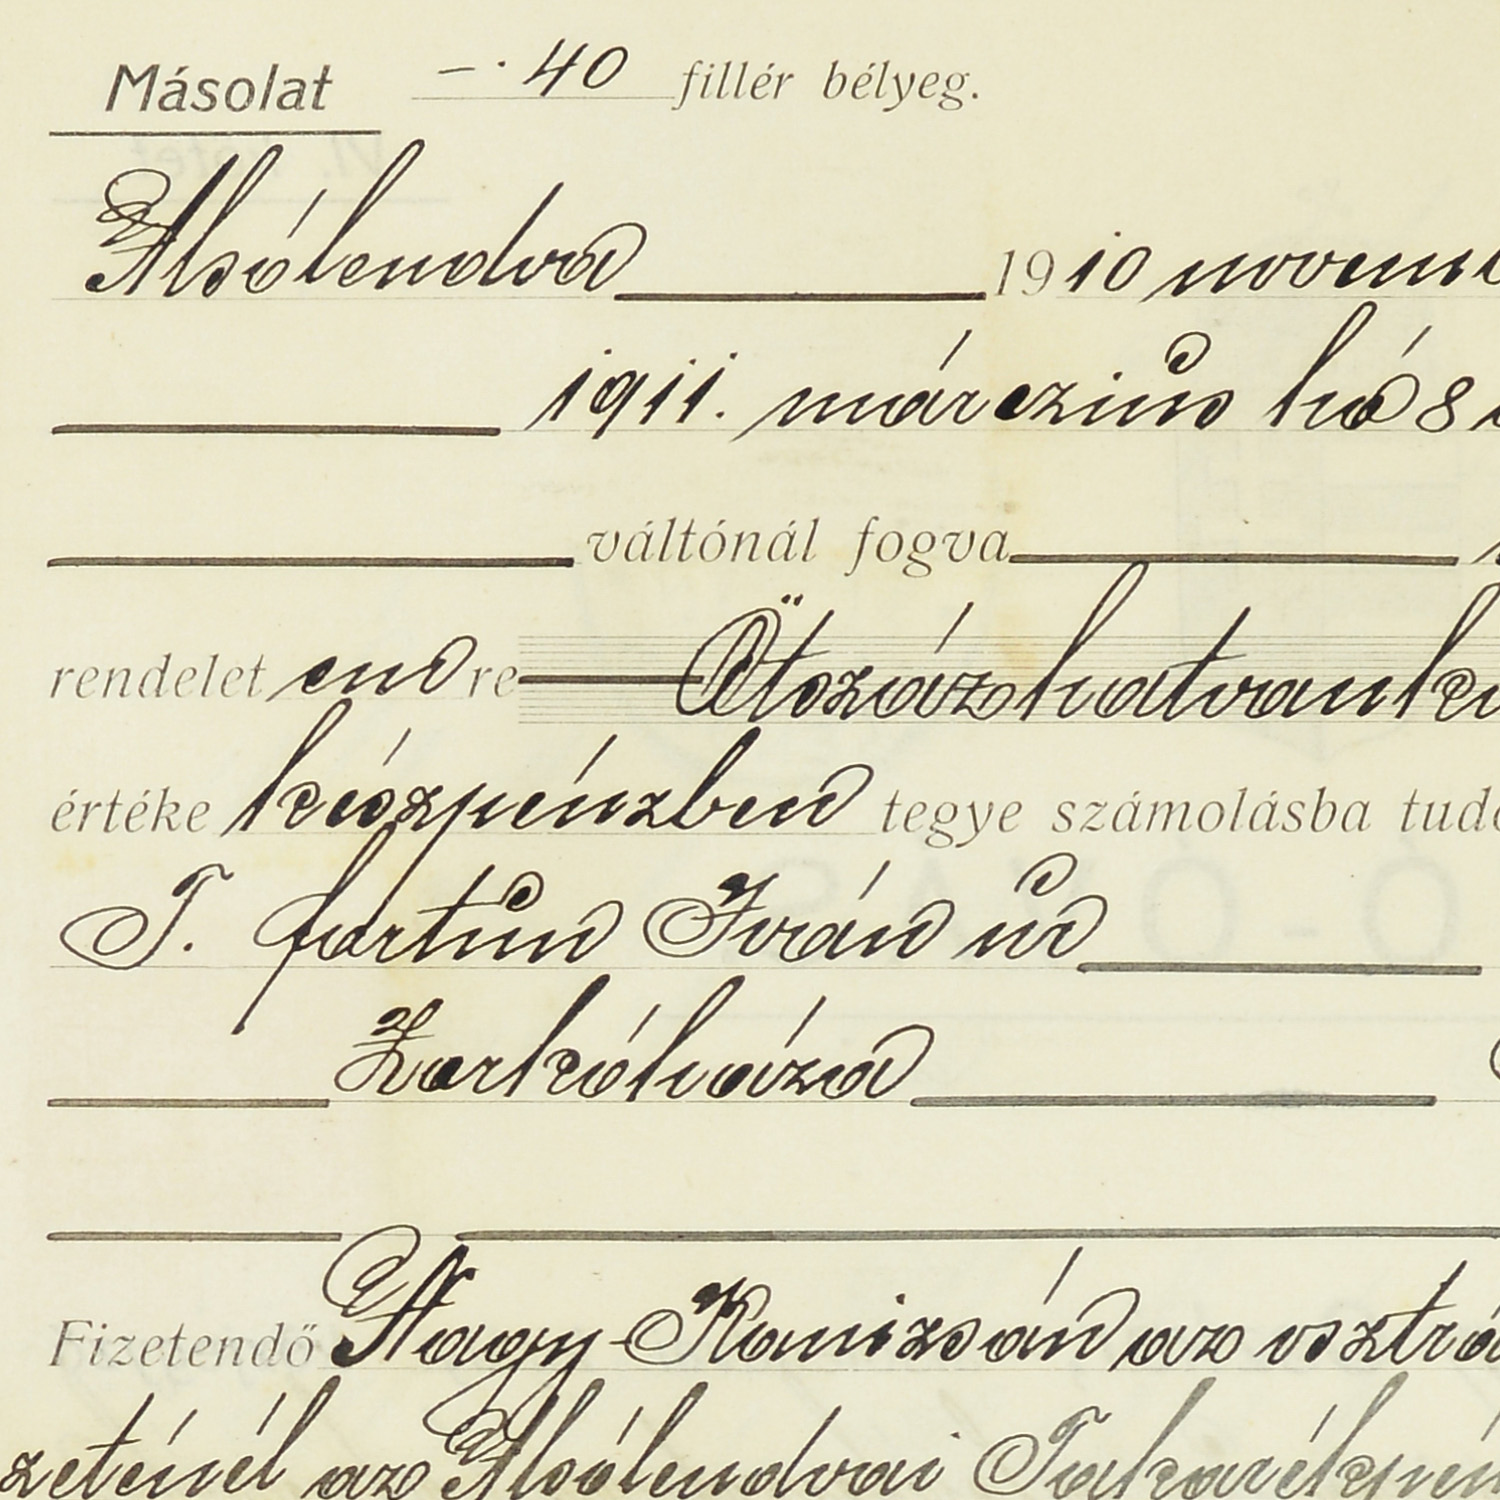 Másolat — · 40 fillér bélyeg.
Alsólendva 1910 novem
1911. márczius hó 8
váltónál fogva
rendelet end re Ötszázhatvanke
értéke készpénzben tegye számolásba tud
T. fartun Iván ur
Zarkóháza
Fizetendő Nagy-Kanizsán az osztrá
zeténél az Alsólendvai Takarékpén